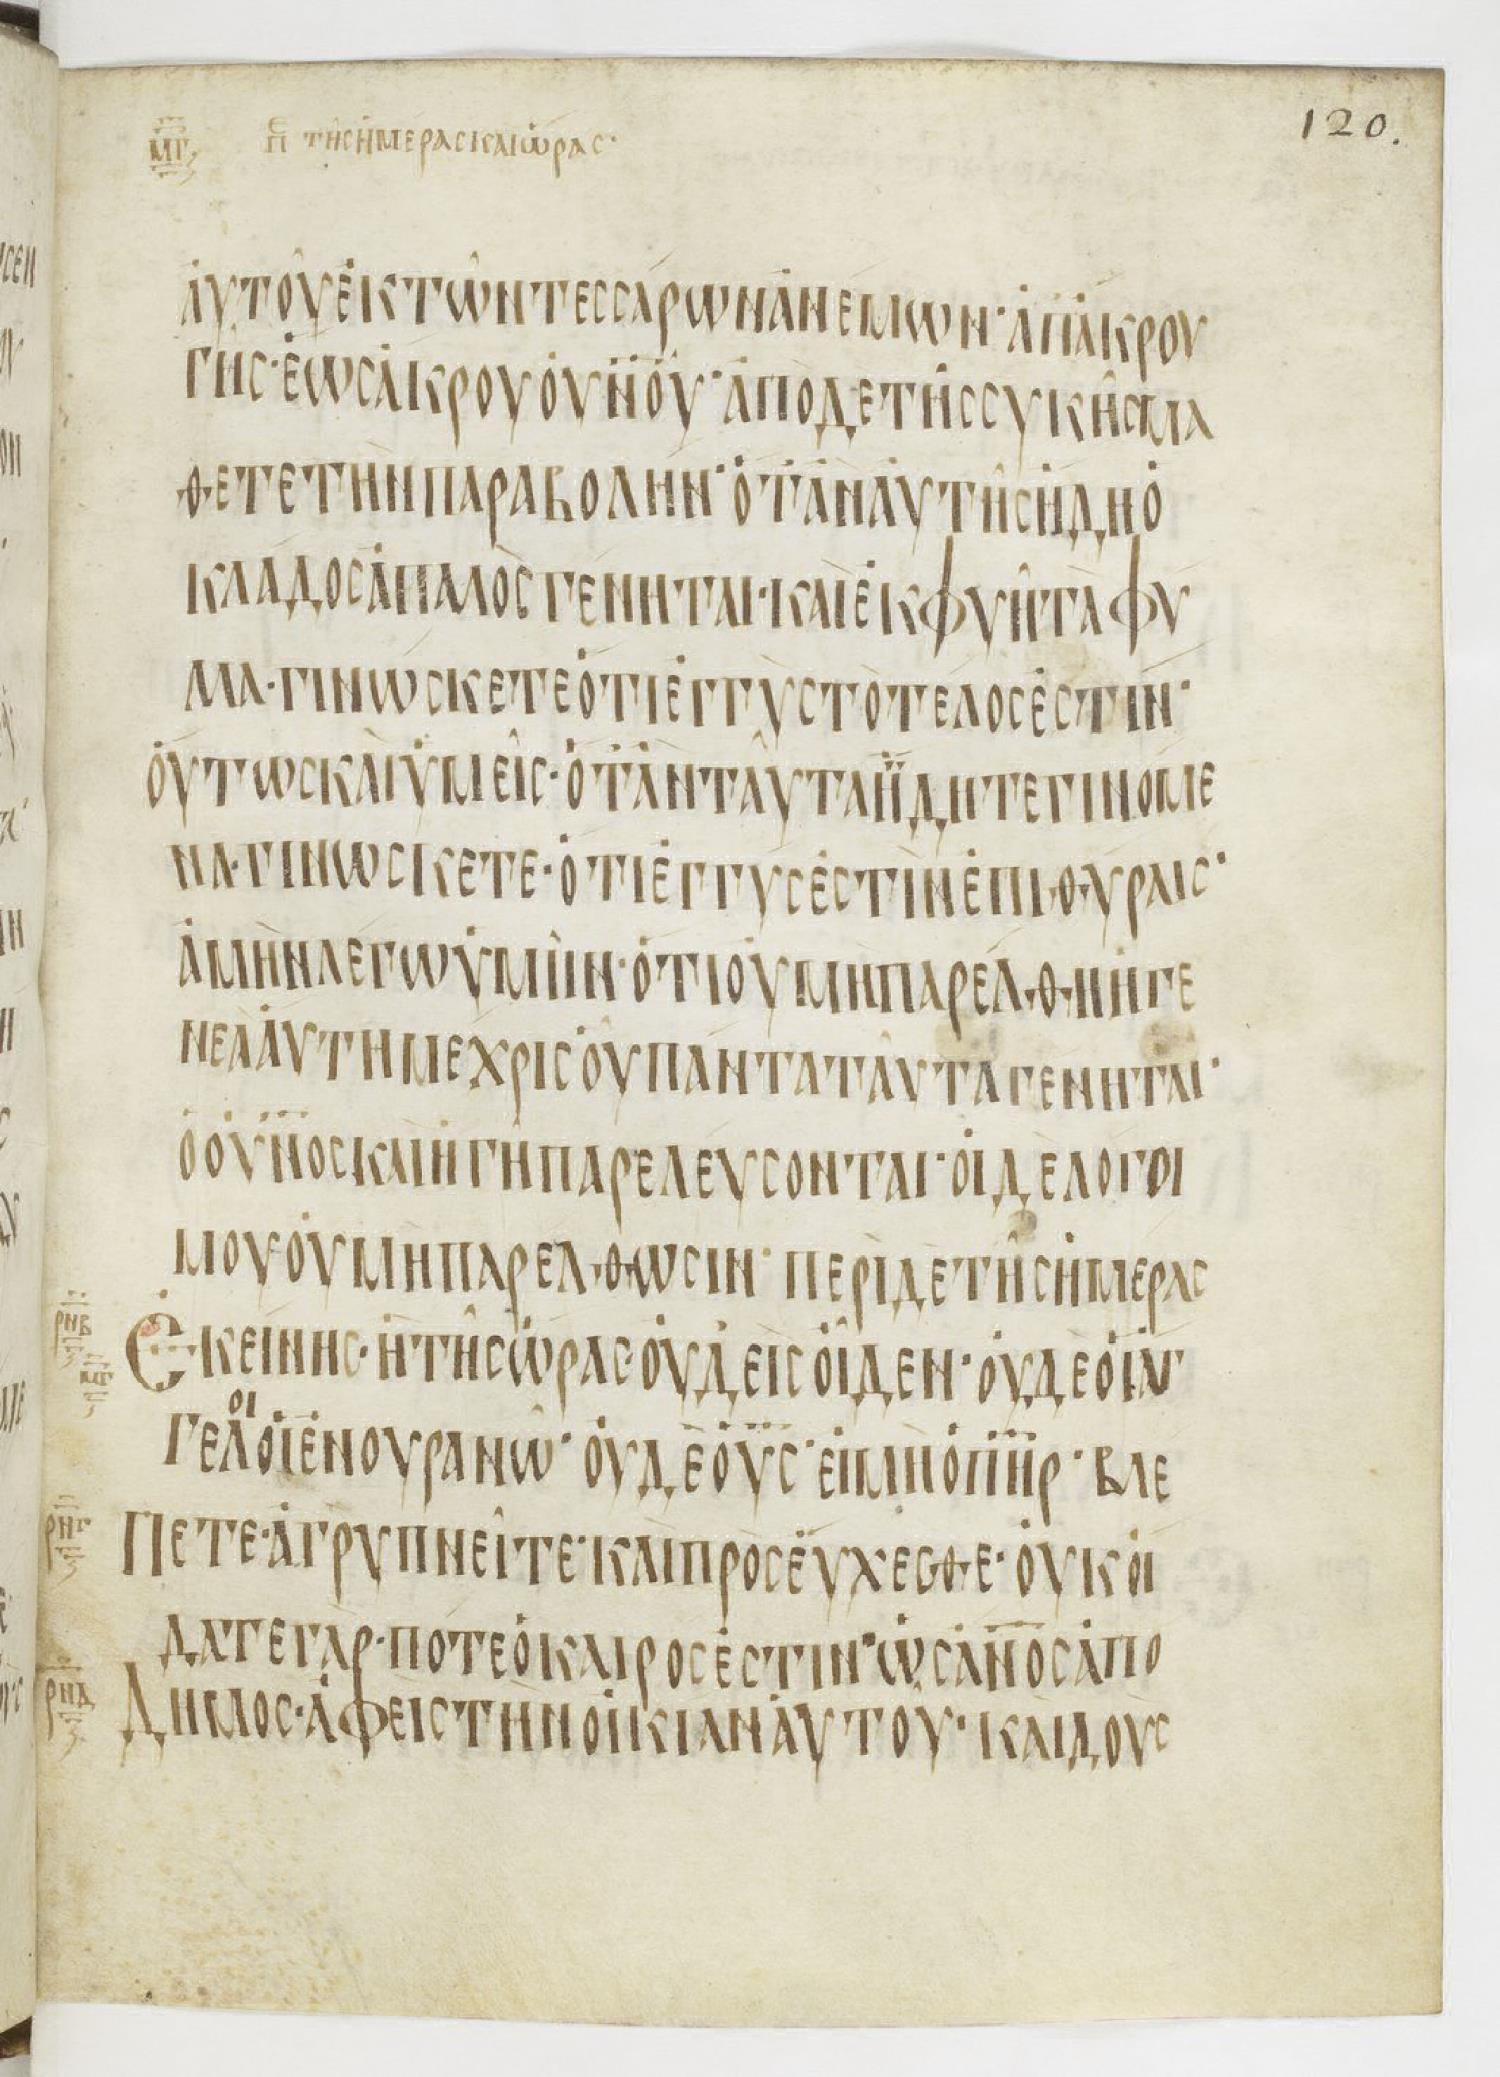 120.
ΜΓ ΠΕ ΤΗΣ ΗΜΕΡΑΣ ΚΑΙ ΩΡΑΣ·
ΑΥΤΟΥΕΚΤΩΝΤΕCCΑΡΩΝΑΝΕΜΩΝ·ΑΠΑΚΡΟΥ
ΓΗC·ΕΩCΑΚΡΟΥΟΥΝΟΥ·ΑΠΟΔΕΤΗCCΥΚΗCΜΑ
ΘΕΤΕΤΗΝΠΑΡΑΒΟΛΗΝ·ΟΤΑΝΑΥΤΗCΗΔΗΟ
ΚΛΑΔΟCΑΠΑΛΟCΓΕΝΗΤΑΙ·ΚΑΙΕΚΦΥΗΤΑΦΥ
ΛΛΑ·ΓΙΝΩCΚΕΤΕΟΤΙΕΓΓΥCΤΟΤΕΛΟCΕCΤΙΝ·
ΟΥΤΩCΚΑΙΥΜΕΙC·ΟΤΑΝΤΑΥΤΑΪΔΗΤΕΓΙΝΟΜΕ
ΝΑ·ΓΙΝΩCΚΕΤΕ·ΟΤΙΕΓΓΥCΕCΤΙΝΕΠΙΘΥΡΑΙC·
ΑΜΗΝΛΕΓΩΥΜΙΝ·ΟΤΙΟΥΜΗΠΑΡΕΛΘΗΗΓΕ
ΝΕΑΑΥΤΗΜΕΧΡΙCΟΥΠΑΝΤΑΤΑΥΤΑΓΕΝΗΤΑΙ·
ΟΟΥΝΟCΚΑΙΗΓΗΠΑΡΕΛΕΥCΟΝΤΑΙ·ΟΙΔΕΛΟΓΟΙ
ΜΟΥΟΥΜΗΠΑΡΕΛΘΩCΙΝ· ΠΕΡΙΔΕΤΗCΗΜΕΡΑC
ΡΝΒ ΕΚΕΙΝΗC·ΗΤΗCΩΡΑC·ΟΥΔΕΙCΟΙΔΕΝ·ΟΥΔΕΟΙΑΓ
ΓΕΛΟΙΟΙΕΝΟΥΡΑΝΩ·ΟΥΔΕΟΥC·ΕΙΜΗΟΠΗΡ·ΒΛΕ
ΡΝΓ ΠΕΤΕ·ΑΓΡΥΠΝΕΙΤΕ·ΚΑΙΠΡΟCΕΥΧΕCΘΕ·ΟΥΚΟΙ
ΔΑΤΕΓΑΡ·ΠΟΤΕΟΚΑΙΡΟCΕCΤΙΝ·ΩCΑΝΟCΑΠΟ
ΡΝΔ ΔΗΜΟC·ΑΦΕΙCΤΗΝΟΙΚΙΑΝΑΥΤΟΥ·ΚΑΙΔΟΥC